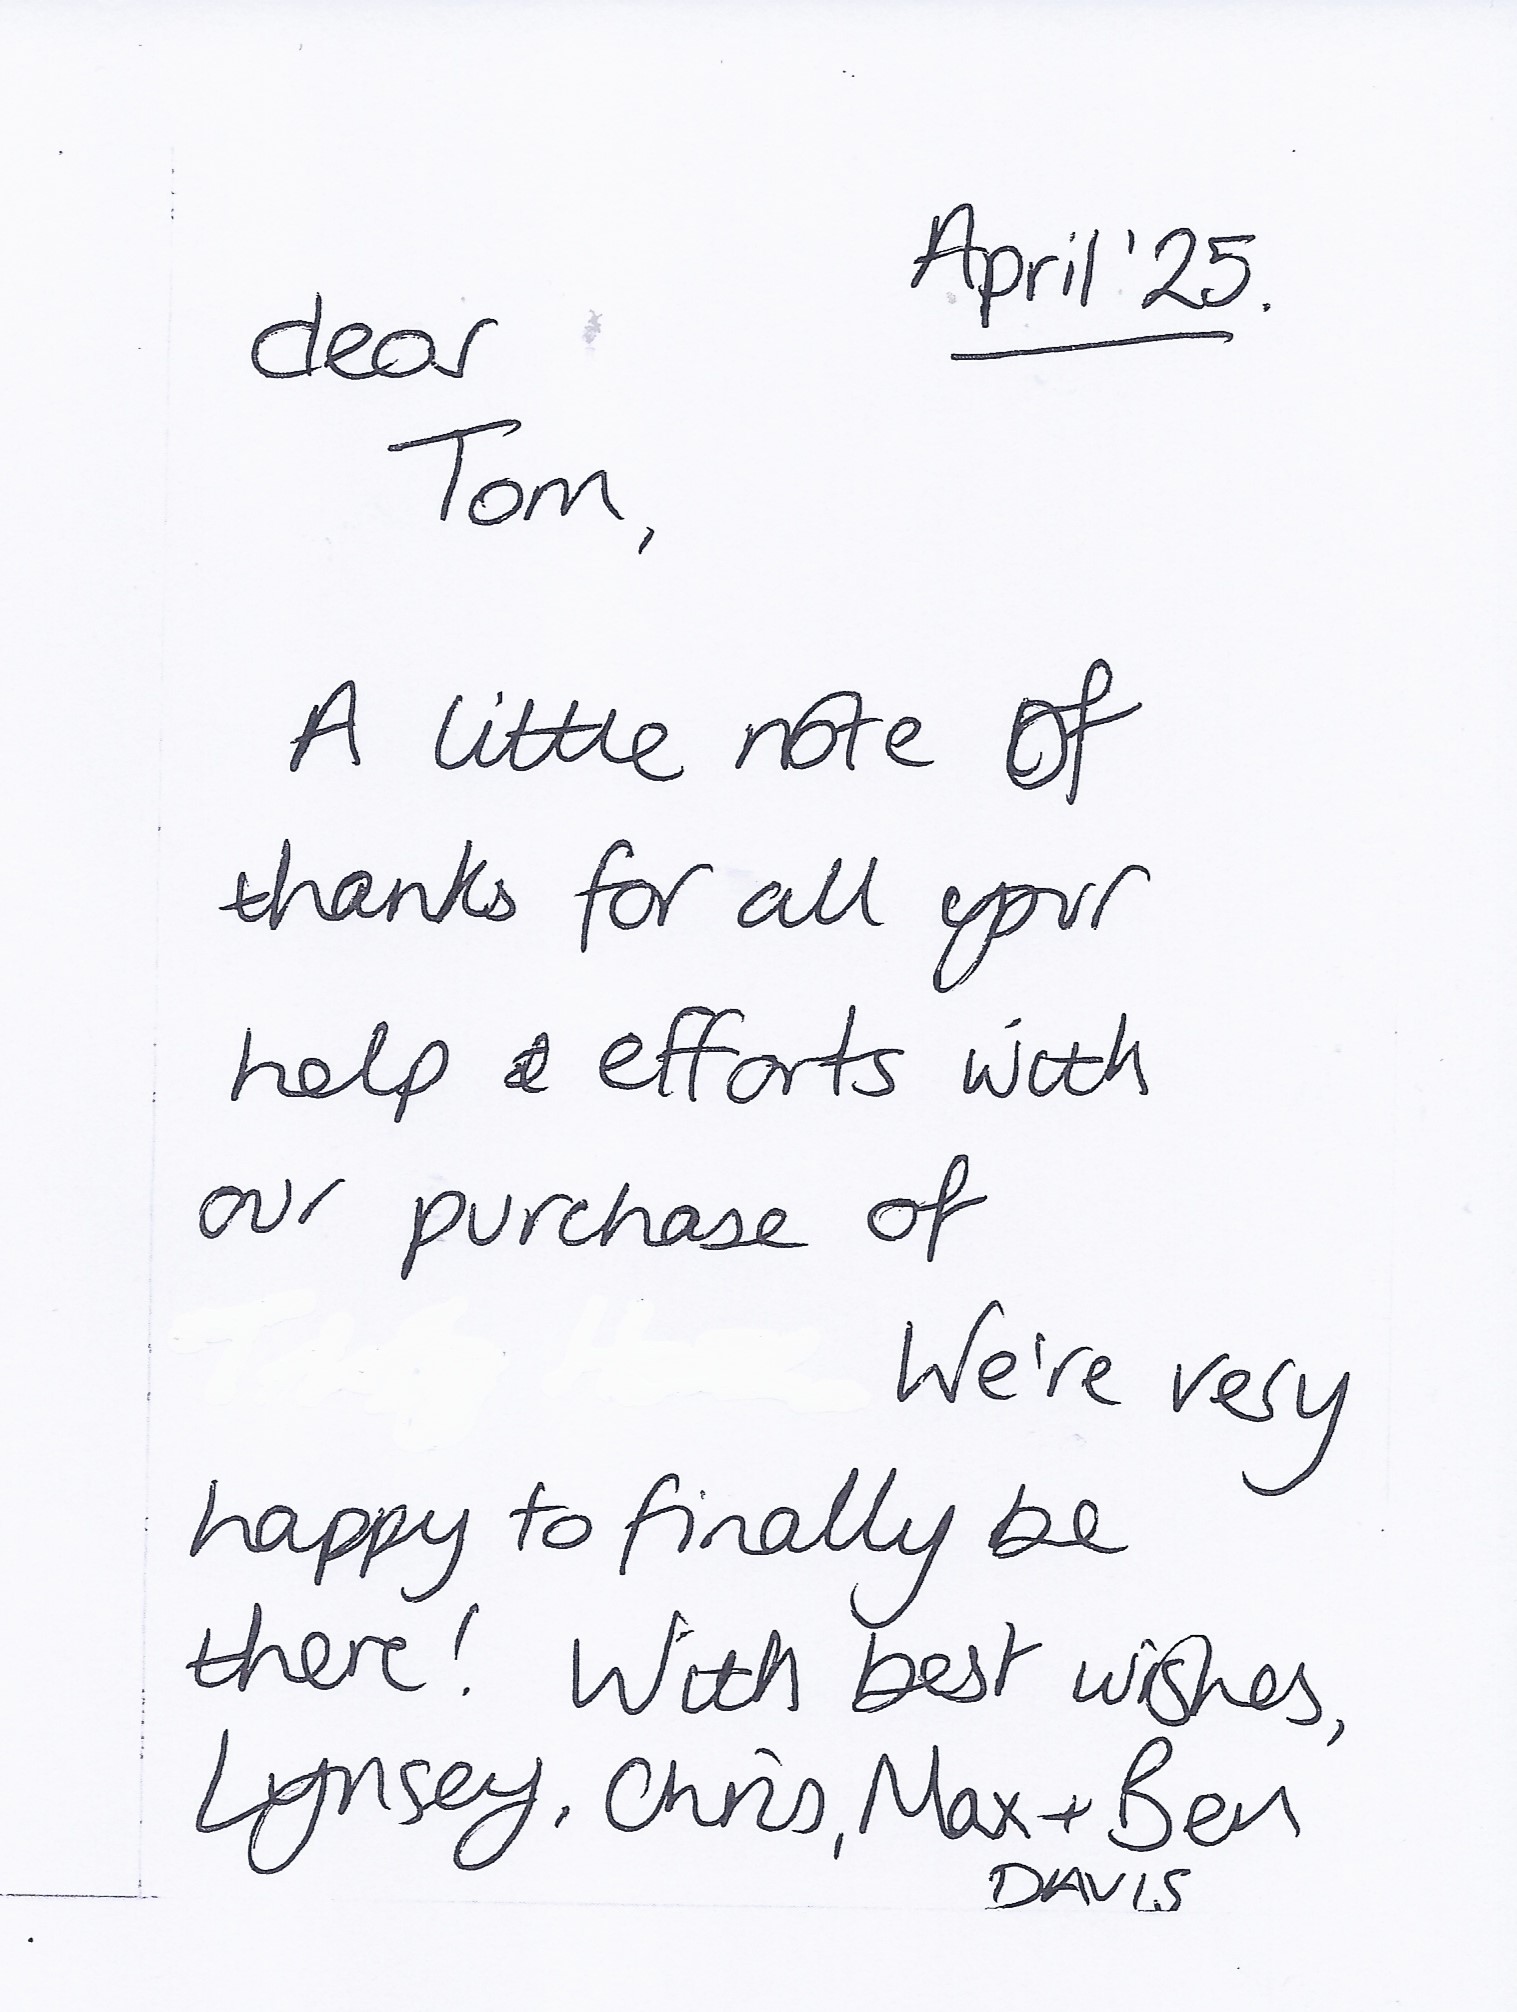 April '25.
dear
Tom,
A little note of
thanks for all your
help & efforts with
our purchase of
We're very
happy to finally be
there! With best wishes,
Lynsey, Chris, Max + Ben
DAVIS